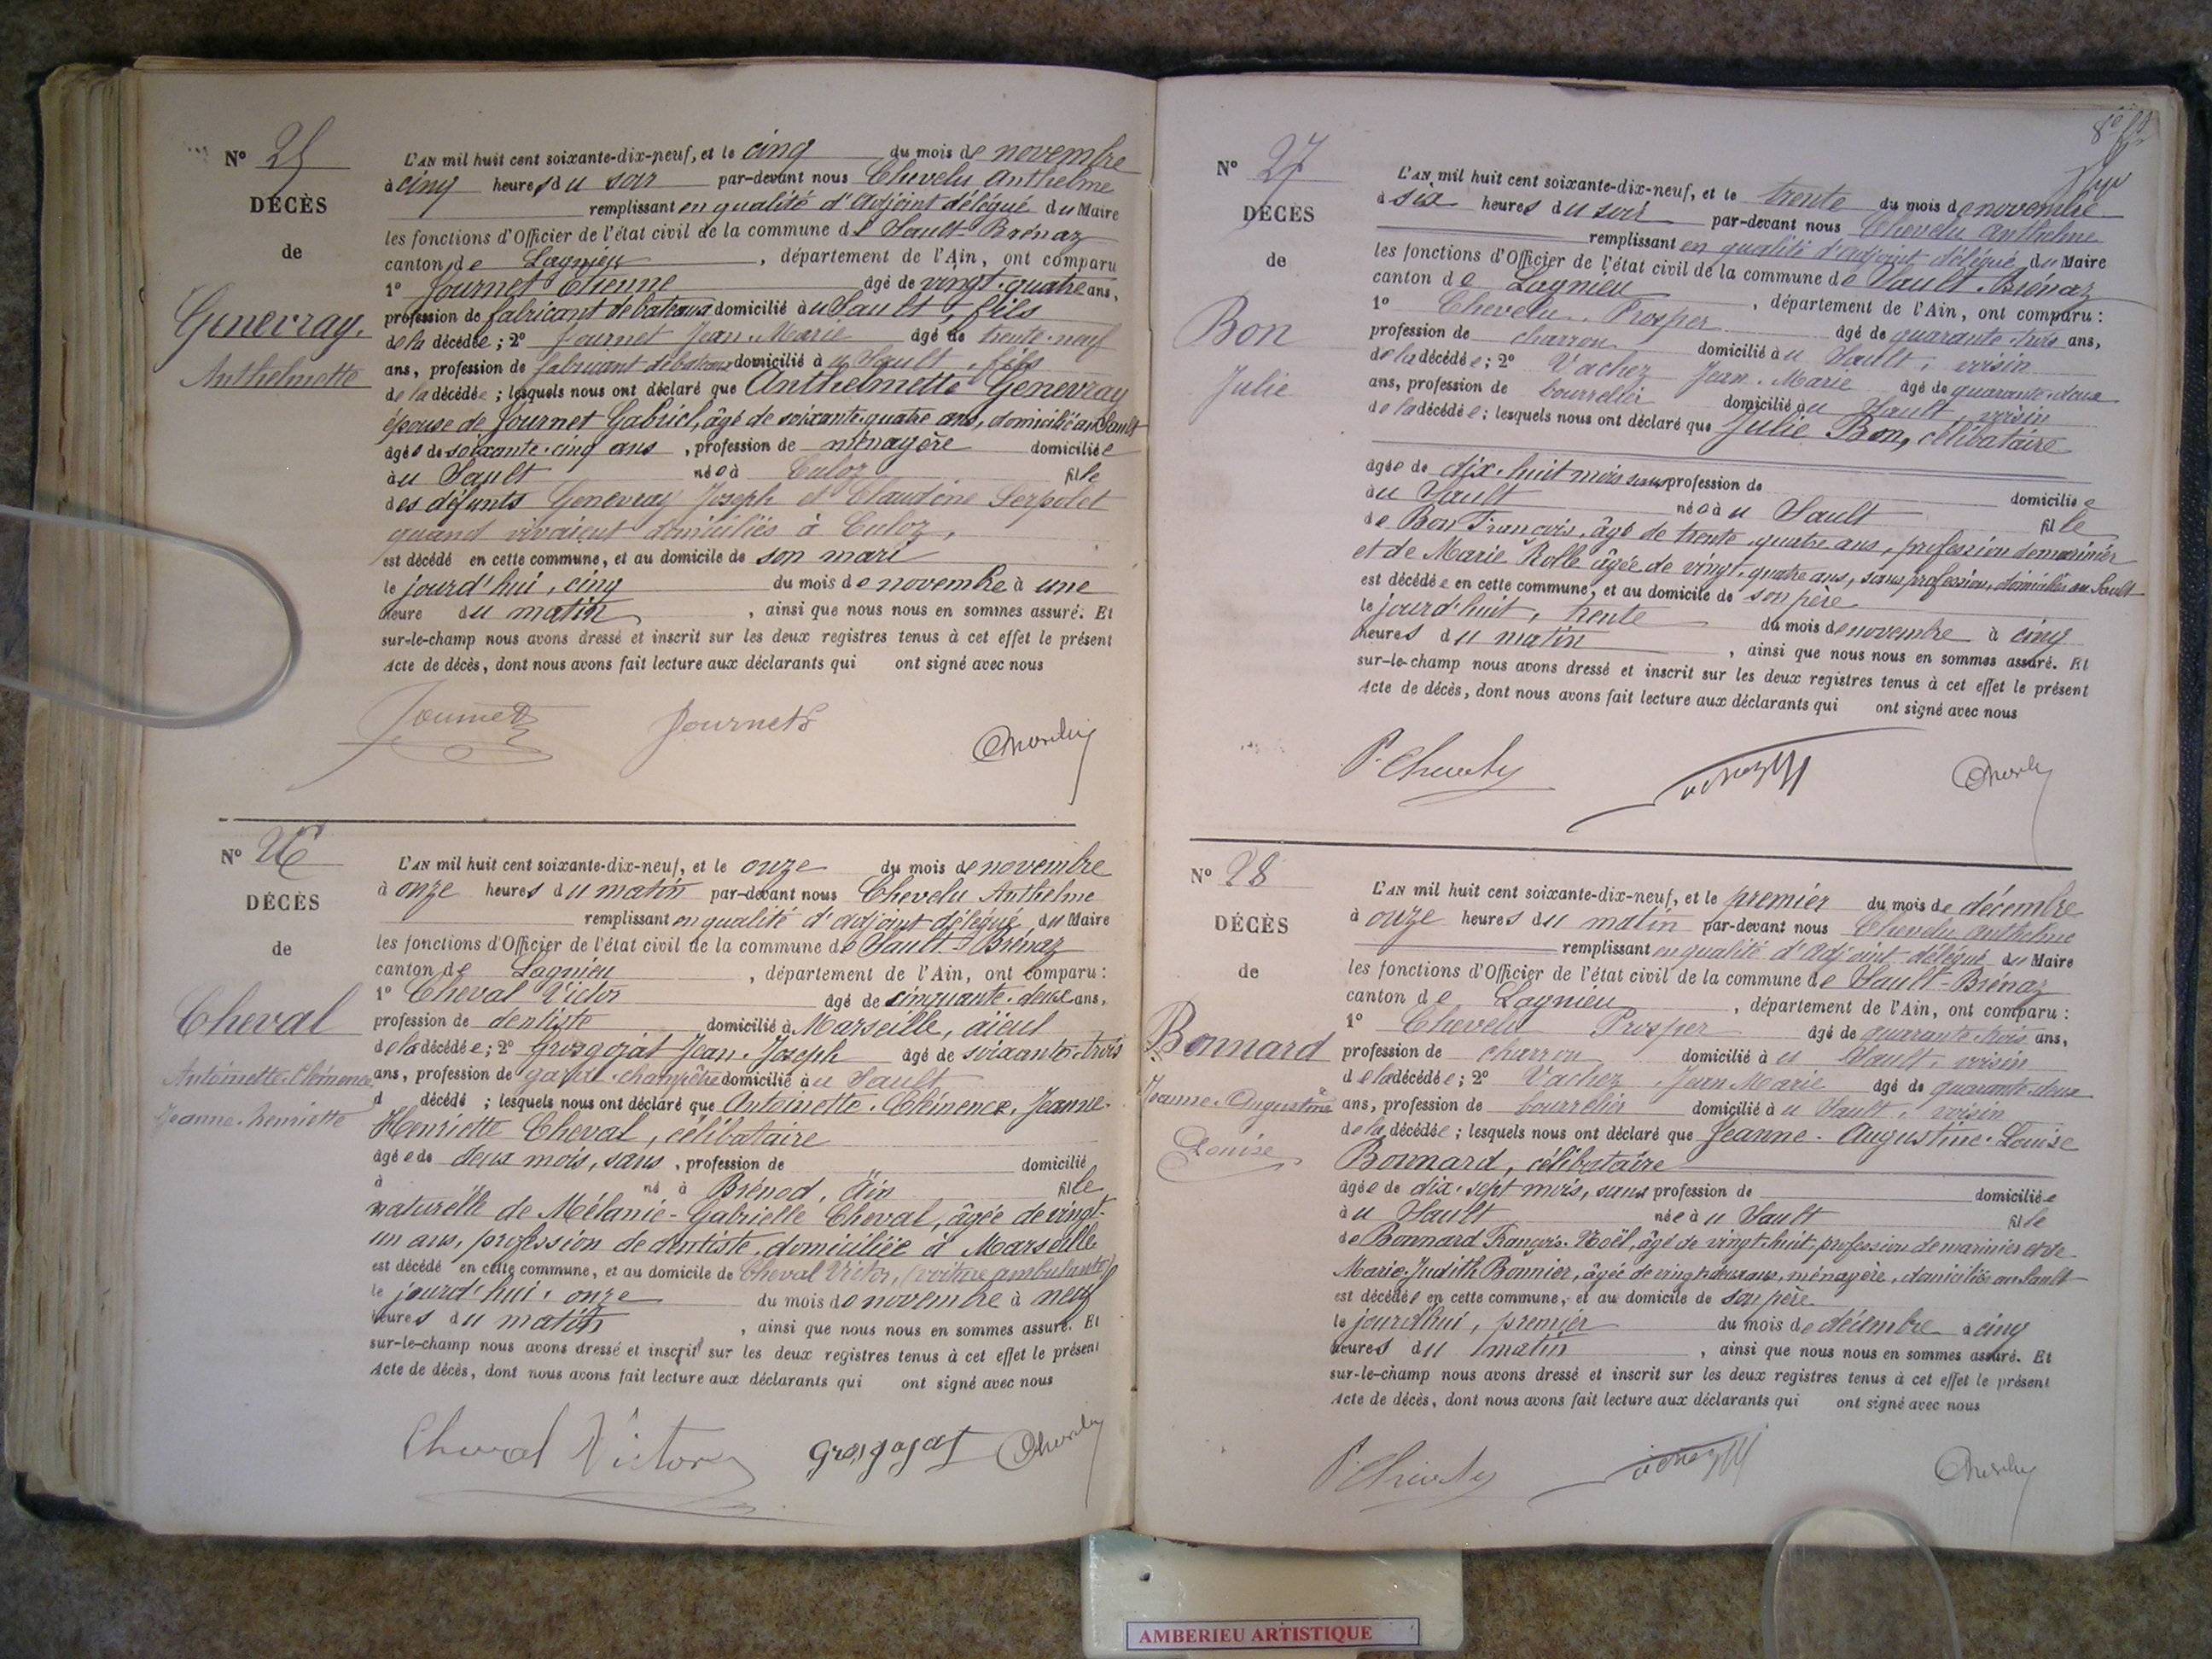 N° 25
DÉCÈS
de
Genevray
Anthelmette
L'AN mil huit cent soixante-dix-neuf, et le cinq du mois de novembre
à cinq heures du soir par-devant nous Chevelu Anthelme
remplissant en qualité d'adjoint délégué du Maire
les fonctions d'Officier de l'état civil de la commune de Sault-Brénaz
canton de Lagnieu, département de l'Ain, ont comparu
1° Journet Etienne âgé de vingt-quatre ans,
profession de fabricant de bateaux domicilié au Sault, fils
de la décédée; 2° Journet Jean-Marie âgé de trente-neuf
ans, profession de fabricant de bateaux domicilié au Sault, fils
de la décédée; lesquels nous ont déclaré que Anthelmette Genevray
épouse de Journet Gabriel, âgé de soixante-quatre ans, domicilié au Sault
âgée de soixante-cinq ans, profession de ménagère domiciliée
au Sault née à Culoz fille
des défunts Genevray Joseph et Claudine Serpolet
quand vivaient domiciliés à Culoz,
est décédé en cette commune, et au domicile de son mari
le jourd'hui, cinq du mois de novembre à une
heure du matin, ainsi que nous nous en sommes assuré. Et
sur-le-champ nous avons dressé et inscrit sur les deux registres tenus à cet effet le présent
Acte de décès, dont nous avons fait lecture aux déclarants qui ont signé avec nous
Journet Journet Chevelu
N° 26
DÉCÈS
de
Cheval
Antoinette-Clémence
Jeanne-henriette
L'AN mil huit cent soixante-dix-neuf, et le onze du mois de novembre
à onze heures du matin par-devant nous Chevelu Anthelme
remplissant en qualité d'adjoint délégué du Maire
les fonctions d'Officier de l'état civil de la commune de Sault-Brénaz
canton de Lagnieu, département de l'Ain, ont comparu:
1° Cheval Victor âgé de cinquante-deux ans,
profession de dentiste domicilié à Marseille, aïeul
de la décédée; 2° Grosgojat Jean-Joseph âgé de soixante-trois
ans, profession de garde-champêtre domicilié au Sault
d décédé; lesquels nous ont déclaré que Antoinette-Clémence, Jeanne-
Henriette Cheval, célibataire
âgée de deux mois, sans, profession de domicilié
à né à Brénod, Ain fille
naturelle de Mélanie-Gabrielle Cheval, âgée de vingt-
un ans, profession de dentiste, domiciliée à Marseille
est décédé en cette commune, et au domicile de Cheval Victor, (voiture ambulante)
le jourd'hui, onze du mois de novembre à neuf
heures du matin, ainsi que nous nous en sommes assuré. Et
sur-le-champ nous avons dressé et inscrit sur les deux registres tenus à cet effet le présent
Acte de décès, dont nous avons fait lecture aux déclarants qui ont signé avec nous
Cheval Victor Grosgojat Chevelu
N° 27
DÉCÈS
de
Bon
Julie
L'AN mil huit cent soixante-dix-neuf, et le trente du mois de novembre
à six heures du soir par-devant nous Chevelu Anthelme
remplissant en qualité d'adjoint délégué du Maire
les fonctions d'Officier de l'état civil de la commune de Sault-Brénaz
canton de Lagnieu, département de l'Ain, ont comparu:
1° Chevelu Prosper âgé de quarante-trois ans,
profession de charron domicilié au Sault, voisin
de la décédée; 2° Vachez Jean-Marie âgé de quarante-deux
ans, profession de bourrelier domicilié au Sault, voisin
de la décédée; lesquels nous ont déclaré que Julie Bon, célibataire
âgée de dix-huit mois sans profession de domiciliée
au Sault née au Sault fille
de Bon François, âgé de trente-quatre ans, profession de marinier
et de Marie Rolle âgée de vingt-quatre ans, sans profession, domiciliés au Sault
est décédée en cette commune, et au domicile de son père
le jourd'huit, trente du mois de novembre à cinq
heures du matin, ainsi que nous nous en sommes assuré. Et
sur-le-champ nous avons dressé et inscrit sur les deux registres tenus à cet effet le présent
Acte de décès, dont nous avons fait lecture aux déclarants qui ont signé avec nous
P. Chevelu Vachez Chevelu
N° 28
DÉCÈS
de
Bonnard
Jeanne-Augustine
Louise
L'AN mil huit cent soixante-dix-neuf, et le premier du mois de décembre
à onze heures du matin par-devant nous Chevelu Anthelme
remplissant en qualité d'adjoint délégué du Maire
les fonctions d'Officier de l'état civil de la commune de Sault-Brénaz
canton de Lagnieu, département de l'Ain, ont comparu:
1° Chevelu Prosper âgé de quarante-trois ans,
profession de charron domicilié au Sault, voisin
de la décédée; 2° Vachez Jean Marie âgé de quarante-deux
ans, profession de bourrelier domicilié au Sault, voisin
de la décédée; lesquels nous ont déclaré que Jeanne-Augustine-Louise
Bonnard, célibataire
âgée de dix-sept mois, sans profession de domiciliée
au Sault née au Sault fille
de Bonnard François-Noël, âgé de vingt-huit, profession de marinier et de
Marie-Judith Bonnier, âgée de vingt-deux ans, ménagère, domiciliés au Sault
est décédée en cette commune, et au domicile de son père
le jourd'hui, premier du mois de décembre à cinq
heures du matin, ainsi que nous nous en sommes assuré. Et
sur-le-champ nous avons dressé et inscrit sur les deux registres tenus à cet effet le présent
Acte de décès, dont nous avons fait lecture aux déclarants qui ont signé avec nous
P. Chevelu Vachez Chevelu
AMBERIEU ARTISTIQUE